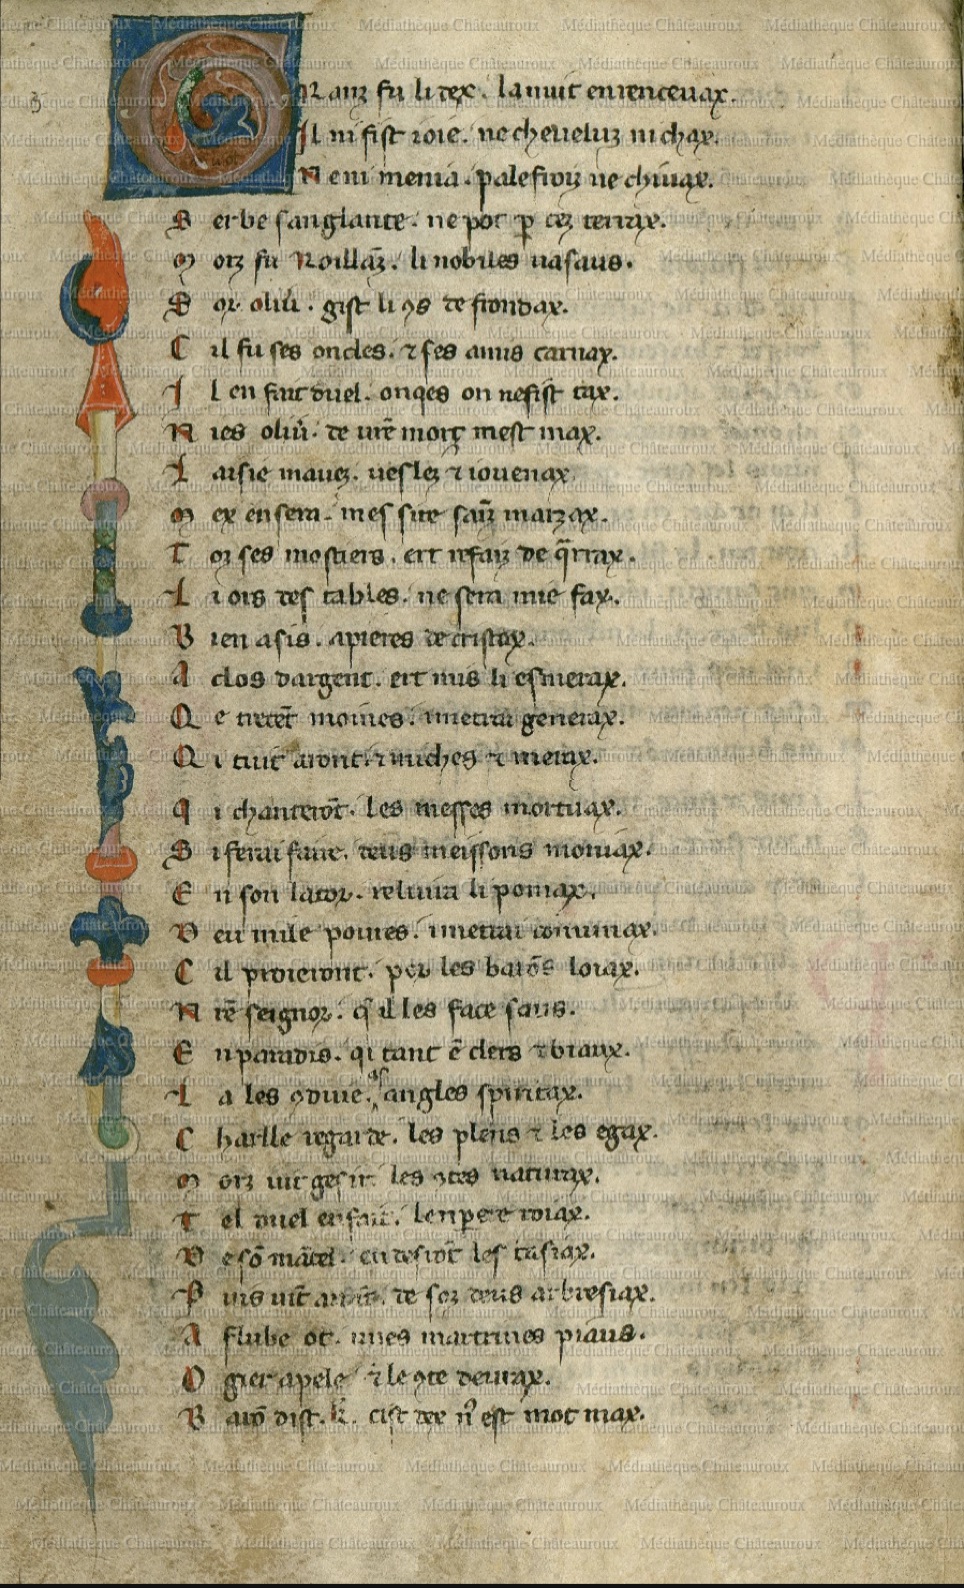 GRanz fu li dex . la nuit en rencevax .
Il ni fist ioie . ne cheueluz ni chax .
N en i mena . palefroiz ne chiuax .
B erbe sanglante . ne pot p cez terrax .
M orz fu Roillāz . li nobiles uasaus .
D or oliu . gist li 9s de frondax .
C il fu ses oncles . ⁊ ses amis carnax .
I l en fait duel . onqes on ne fist tax .
N ies oliu . de ur̄e morz mest max .
L aisie mauez . ueslez ⁊ iouenax
M ex en sera . mes sire saīz marzax .
T oz ses mostiers . ert refaiz de q̄rrax .
L i ors des tables . ne sera mie fax .
B ien asis . a pieres de cristax .
A clos dargent . ert mis li esmerax .
Q e trecēt moines . i metrai generax .
Q i tuit auront . ⁊ miches ⁊ merax .
Q i chanterōt . les messes mortuax .
S i ferai faire . deus meissons moniax .
E n son la tor . reluira li pomax .
D eu mile poures . i metrai comunax .
C il proieront . por les barōs loiax .
N r̄e seignor . q il les face saus .
E n paradis . qi tant ē clers ⁊ biaux .
L a les 9duie . as angles spiritax .
C harlle regarde . les plens ⁊ les egax .
M orz uit gesir . les 9tes naturax .
T el duel en fait . lenpere roiax .
D e sō mātel . en desrōt les tasiax .
P uis uīt . de soz deus arbresiax .
A fluble ot . unes martrines piaus .
O gier apele ⁊ le 9te deruax .
B arō dist . k . cist dex n est mot max .
Médiathèque Châteauroux